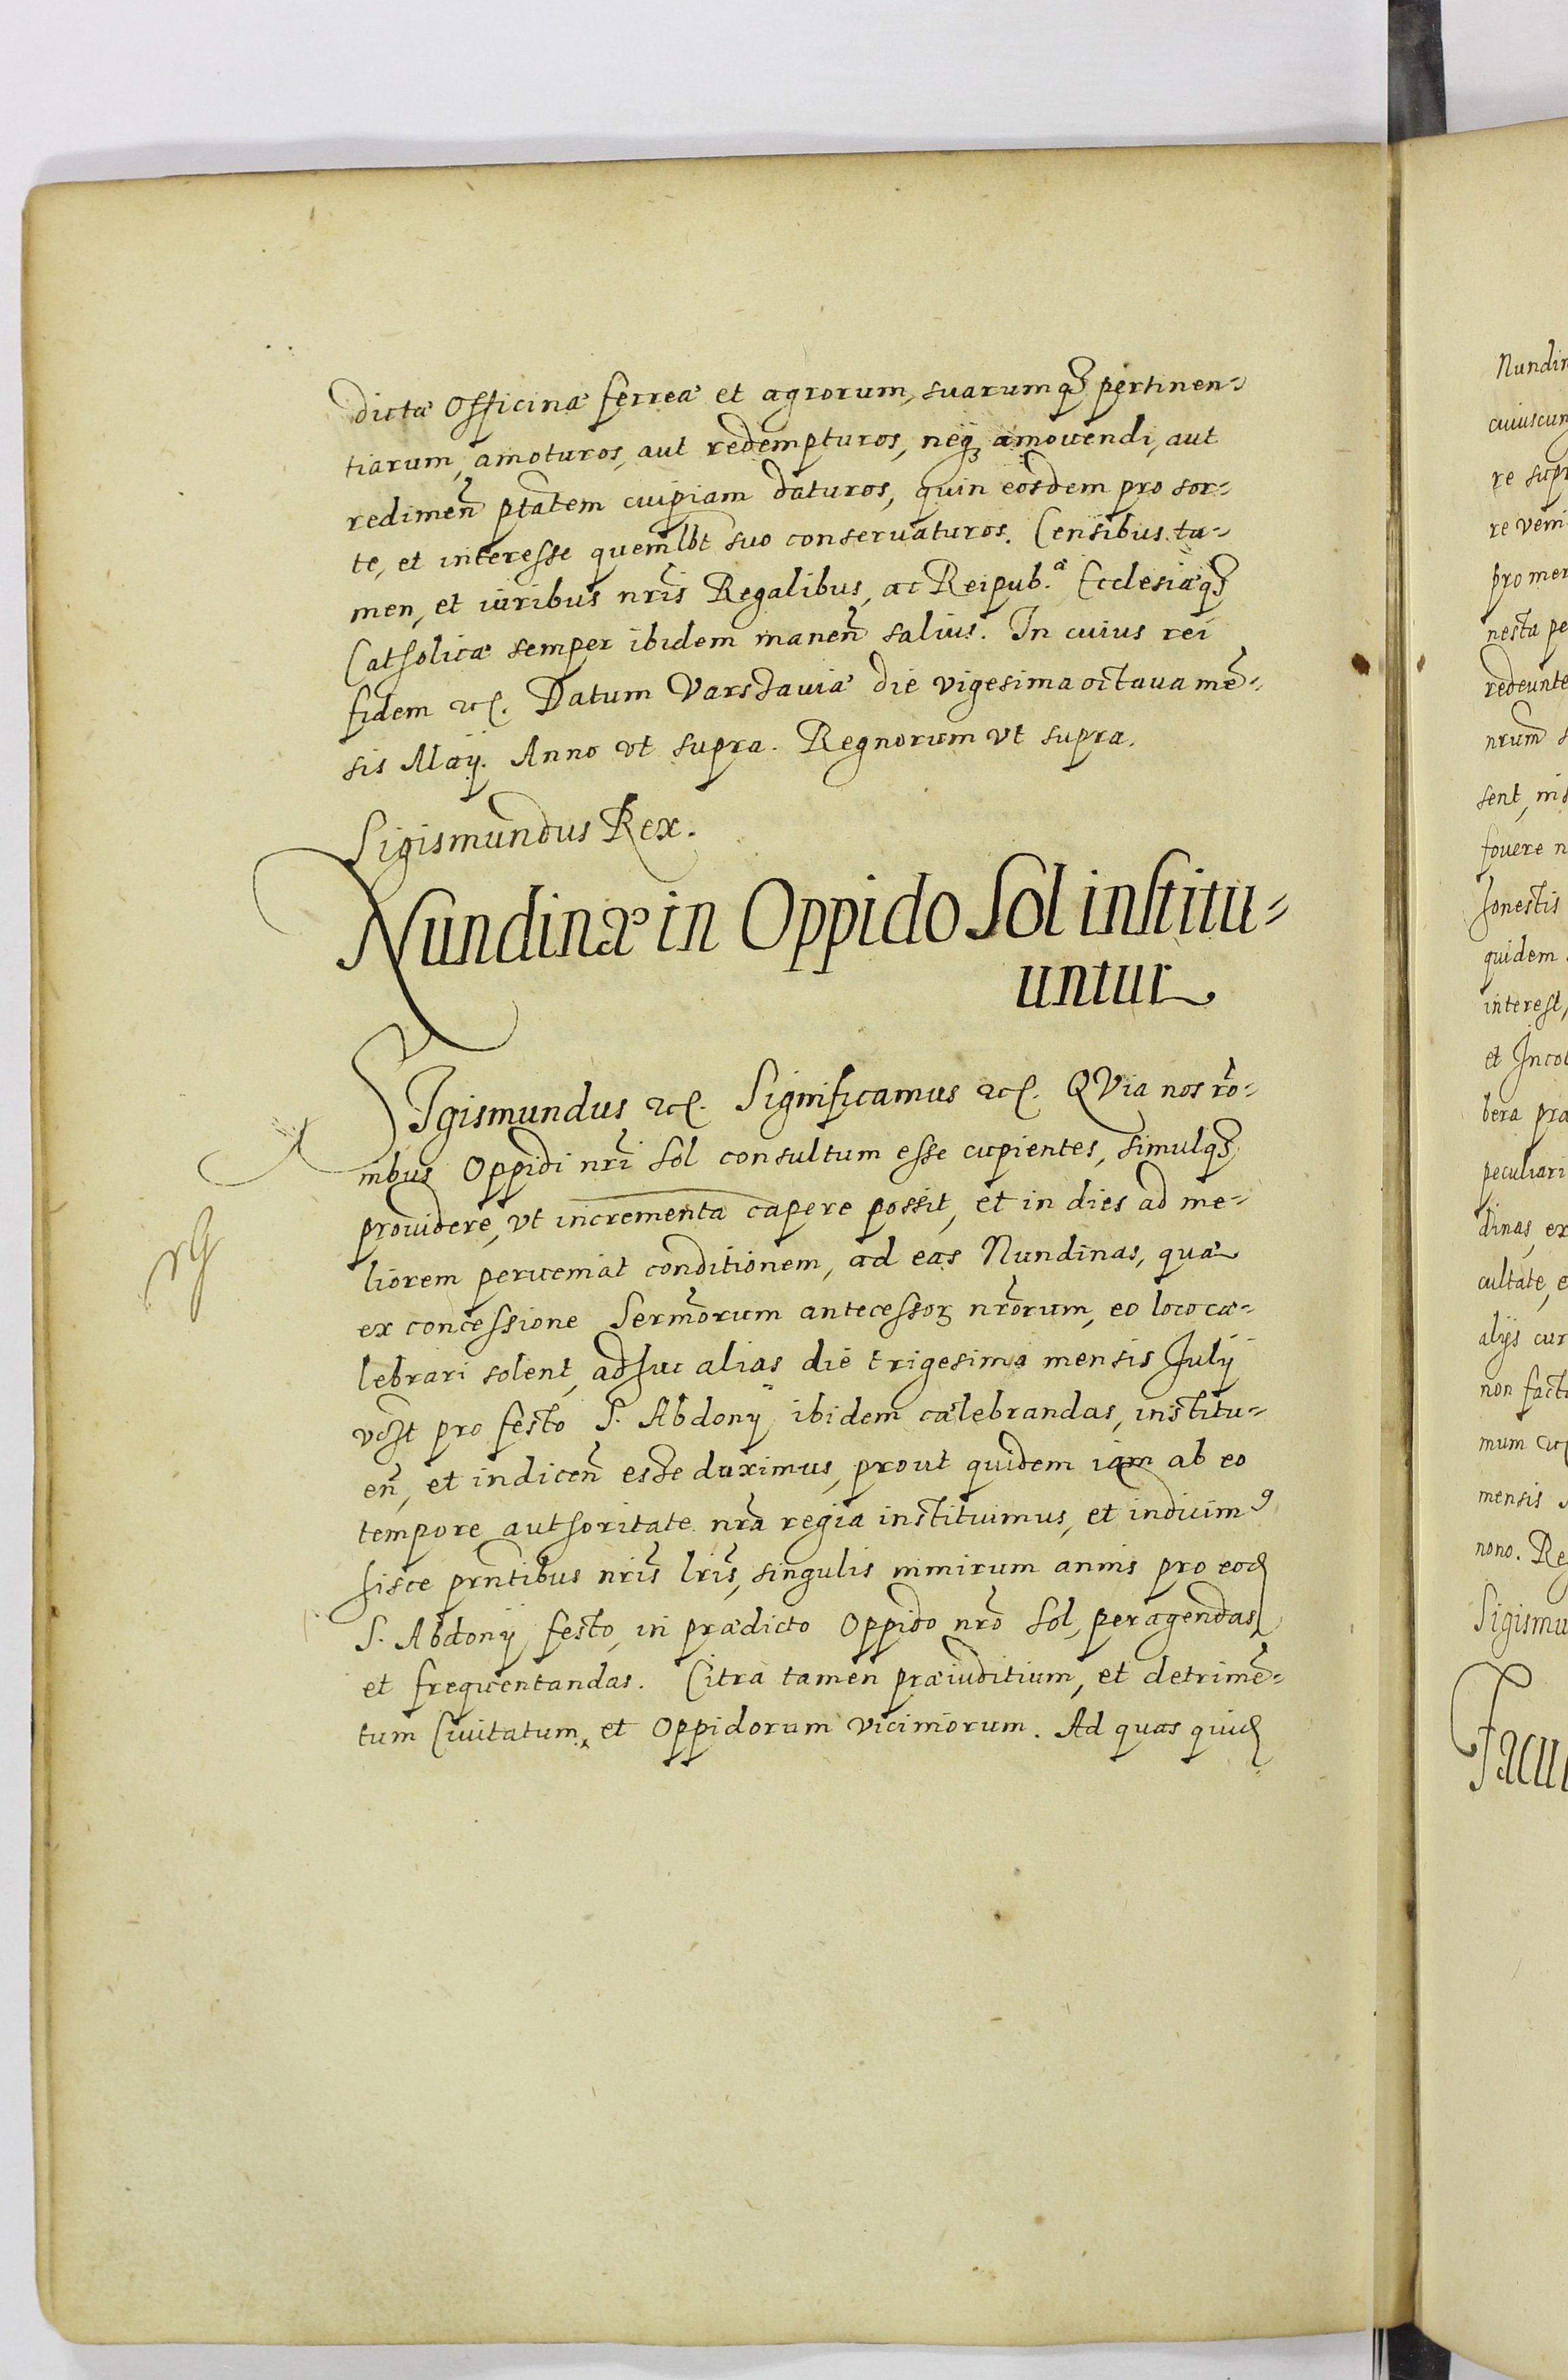 dictæ Officinæ ferreæ et agrorum, suarumq₃ pertinen-
tiarum, amoturos, aut redempturos, neq₃ amouendi, aut
redimen̄ ptātem cuipiam daturos, quin eosdem pro sor-
te, et interesse quemlbt suo conseruaturos. Censibus ta-
men, et iuribus nris̄ Regalibus, ac Reipub.ᵃ Ecclesiæq₃
Catholicæ semper ibidem manen̄ saluis. In cuius rei
fidem etc. Datum Varschauiæ die vigesima octaua mē-
sis Maÿ. Anno vt supra. Regnorum vt supra.
Sigismundus Rex.
Nundinæ in Oppido Sol institu-
untur
SIgismundus etc. Significamus etc. QVia nos rō-
nibus Oppidi nrī Sol consultum esse cupientes, simulq₃
prouidere, vt incrementa capere possit, et in dies ad me-
liorem perueniat conditionem, ad eas Nundinas, quæ
ex concessione Sermōrum antecessoꝝ nrōrum, eo loco cæ-
lebrari solent, adhuc alias die trigesima mensis Julÿ
vdlt pro festo S. Abdonÿ ibidem cælebrandas, institu-
en̄, et indicen̄ esse duximus, prout quidem iam ab eo
tempore authoritate nrā regia instituimus, et indicimꝰ
hisce prn̄tibus nris̄ lris̄, singulis nimirum annis pro eod
S. Abdonÿ festo, in prædicto Oppido nrō Sol, peragendas
et frequentandas. Citra tamen præiuditium, et detrimē-
tum Ciuitatum, et Oppidorum vicinorum. Ad quas quid
Nundin
cuiuscun
re supr
re veni
pro mer
nesta pe
redeunte
nrum s
sent, nis
fouere n
honestis
quidem
interest,
et Incol
bera pra
peculiari
dinas, ex
cultate, e
alijs cur
non fact
mum
mensis
nono. Re
Sigismu
Facul